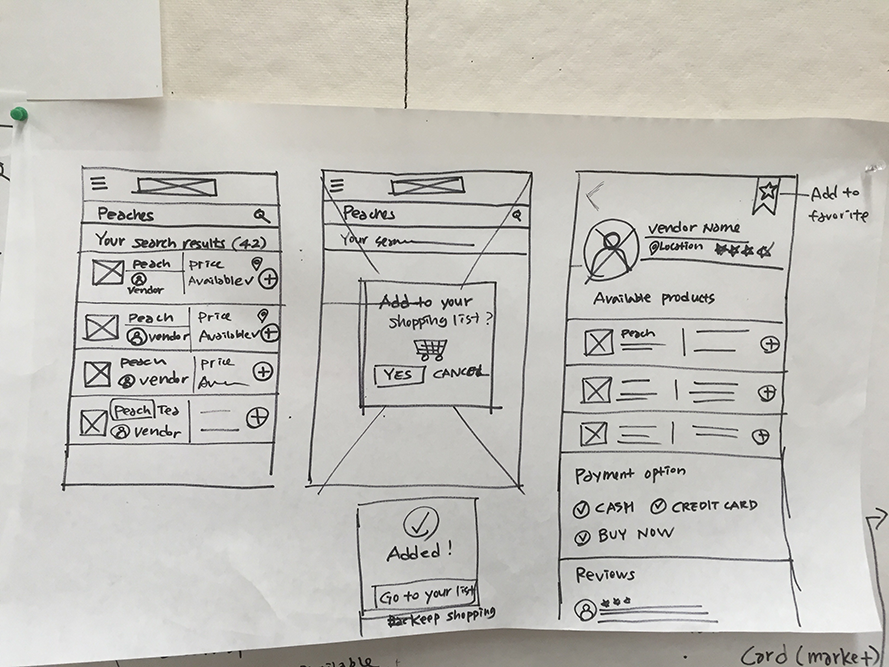 Peaches
Your search results (42)
Peach
Vendor
Price
Available
Peach
vendor
Price
Available
Peach
vendor
Price
Peach Tea
vendor
Peaches
Your
Add to your
shopping list?
YES CANCEL
Added!
Go to your list
Keep shopping
Add to
favorite
Vendor Name
Location
Available products
Peach
Payment option
CASH CREDIT CARD
BUY NOW
Reviews
Card (market)